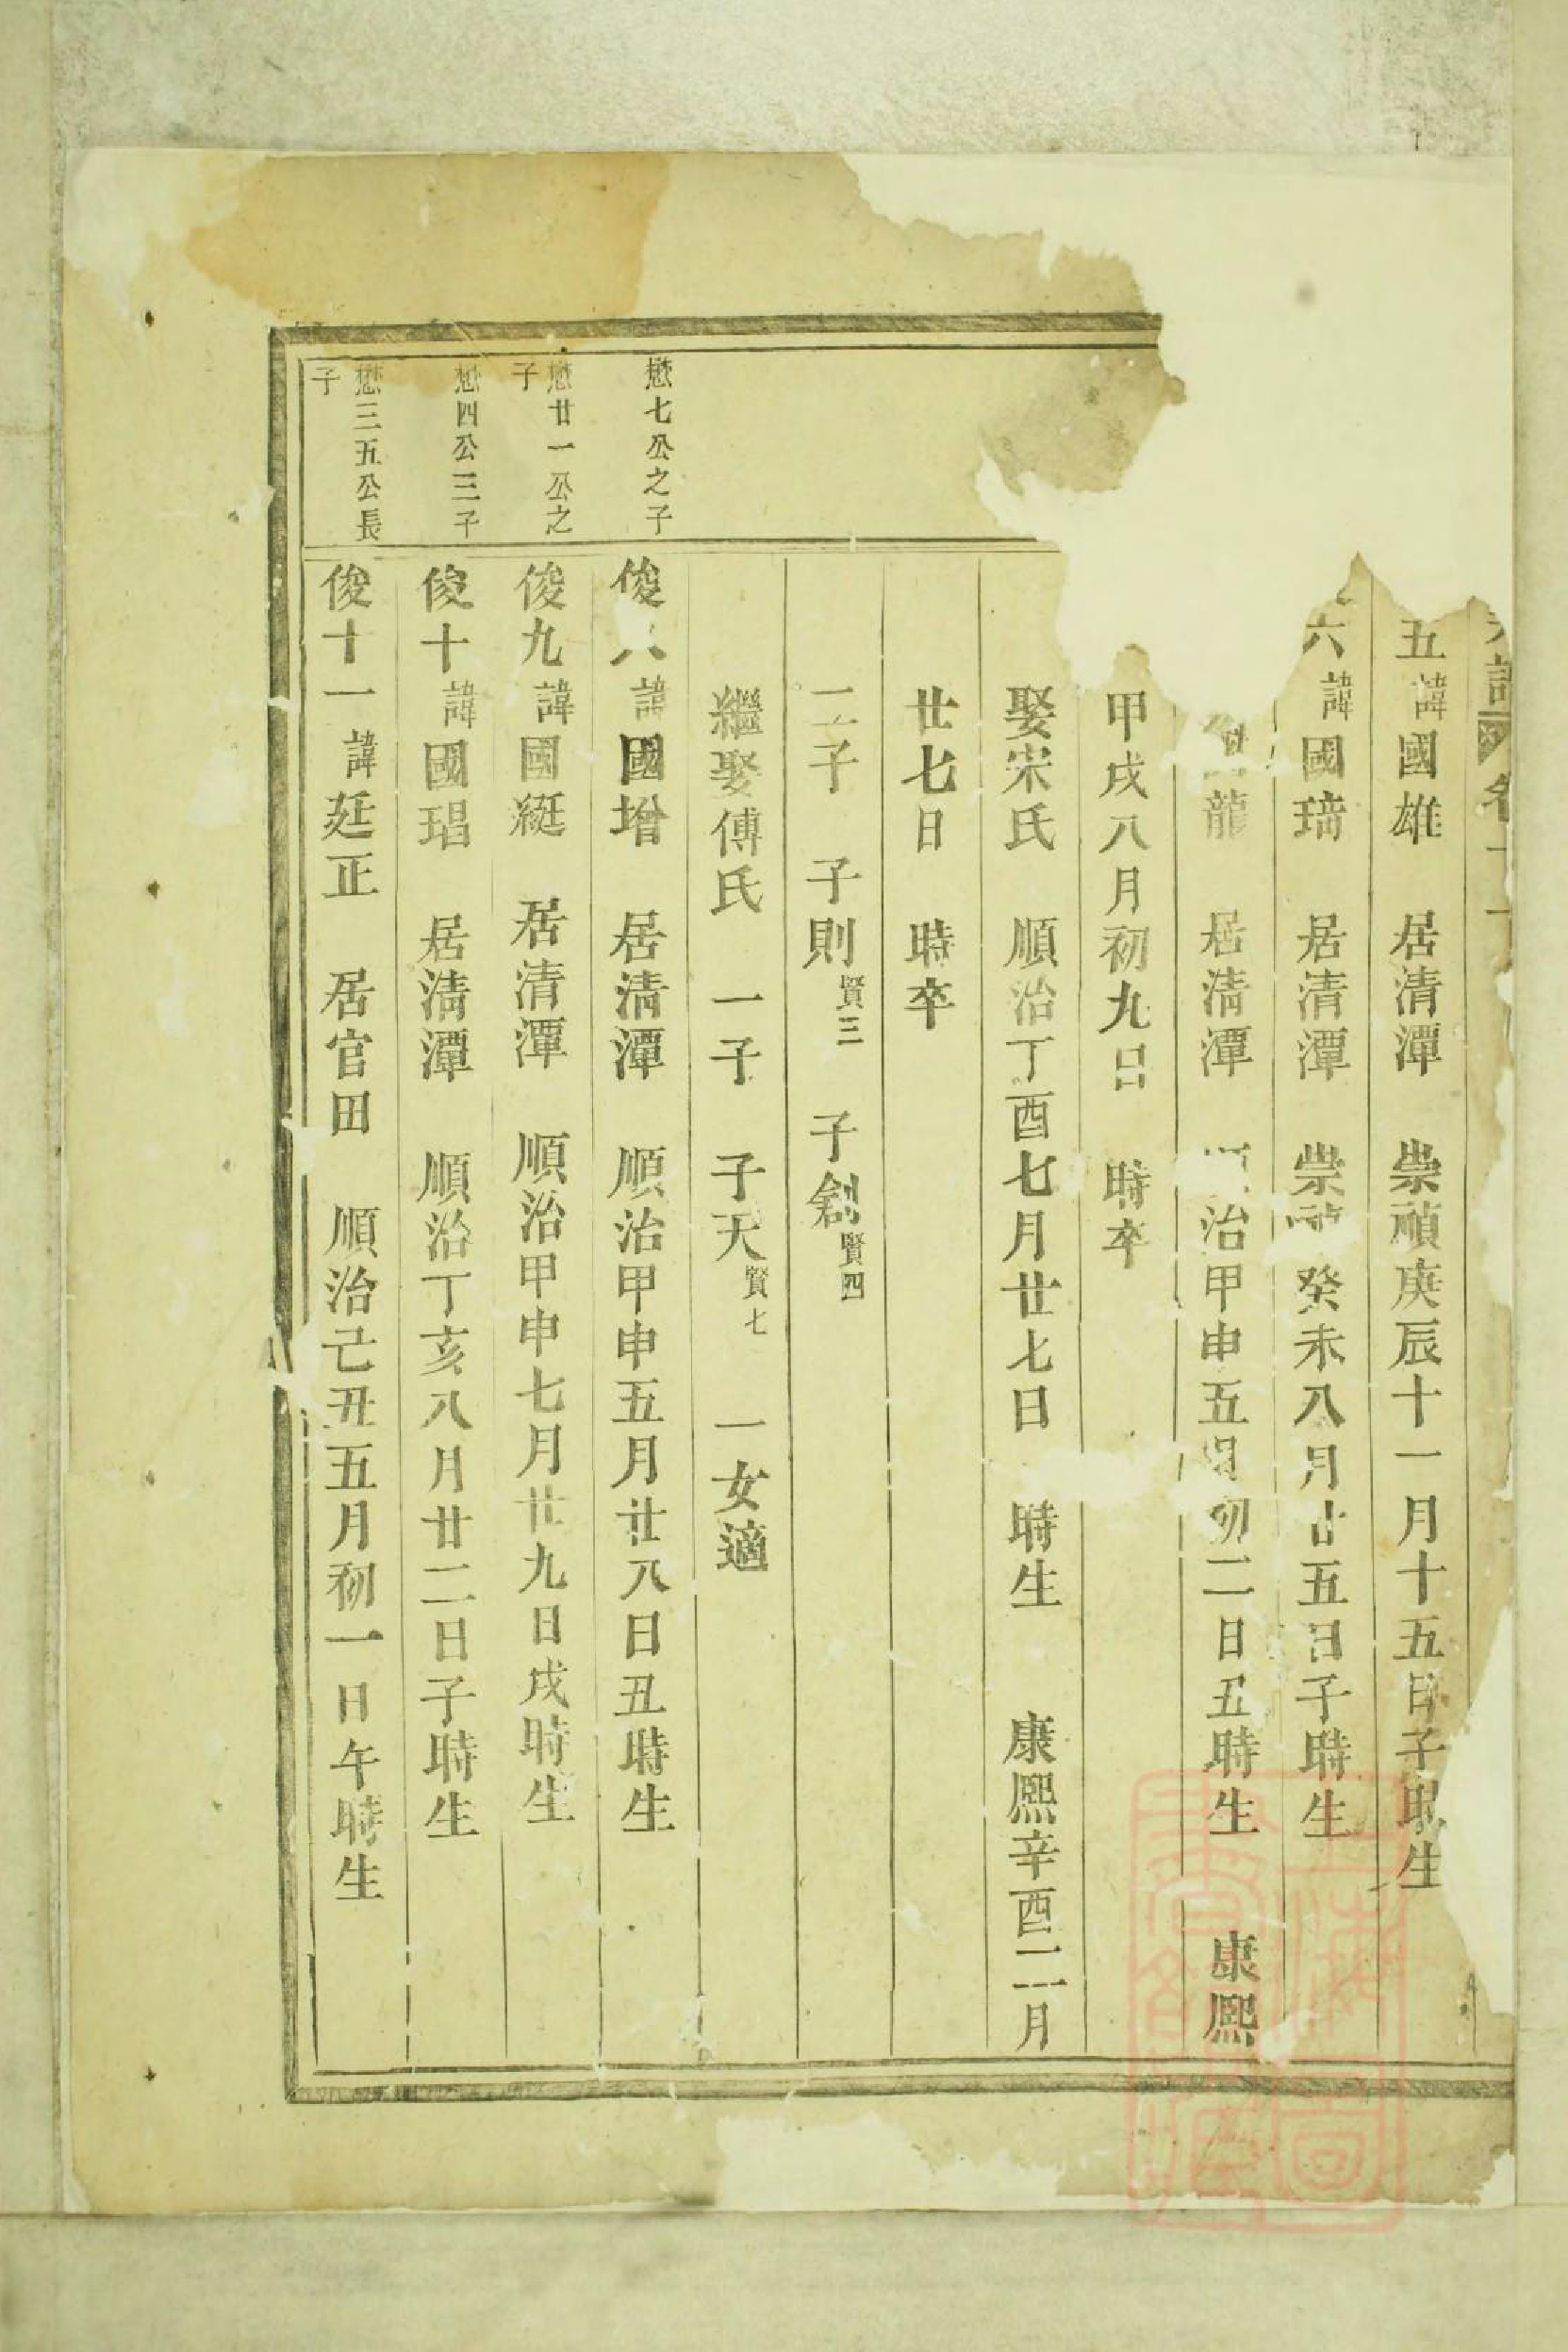 五諱國雄　居清潭　崇禎庚辰十一月十五日子時生
六諱國琦　居清潭　崇禎癸未八月廿五日子時生
龍　居清潭　順治甲申五月初二日丑時生　康熙
甲戌八月初九日　時卒
娶宋氏　順治丁酉七月廿七日　時生　康熙辛酉二月
廿七日　時卒
二子　子則賢三　子劍賢四
繼娶傅氏　一子　子天賢七　一女適
懋七公之子
俊八諱國增　居清潭　順治甲申五月廿八日丑時生
懋廿一公之
子
俊九諱國綎　居清潭　順治甲申七月廿九日戌時生
懋四公三子
俊十諱國琩　居清潭　順治丁亥八月廿二日子時生
懋三五公長
子
俊十一諱廷正　居官田　順治己丑五月初一日午時生